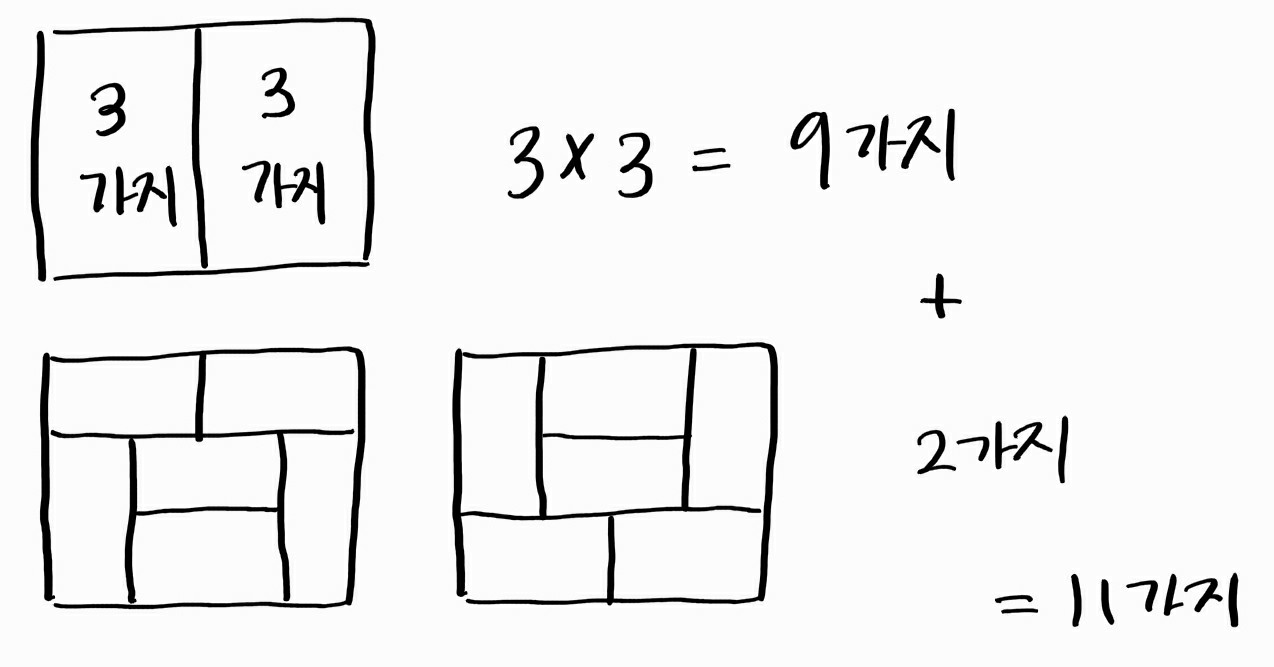 3 가지
3 가지
3 × 3 = 9가지
+
2가지
= 11가지